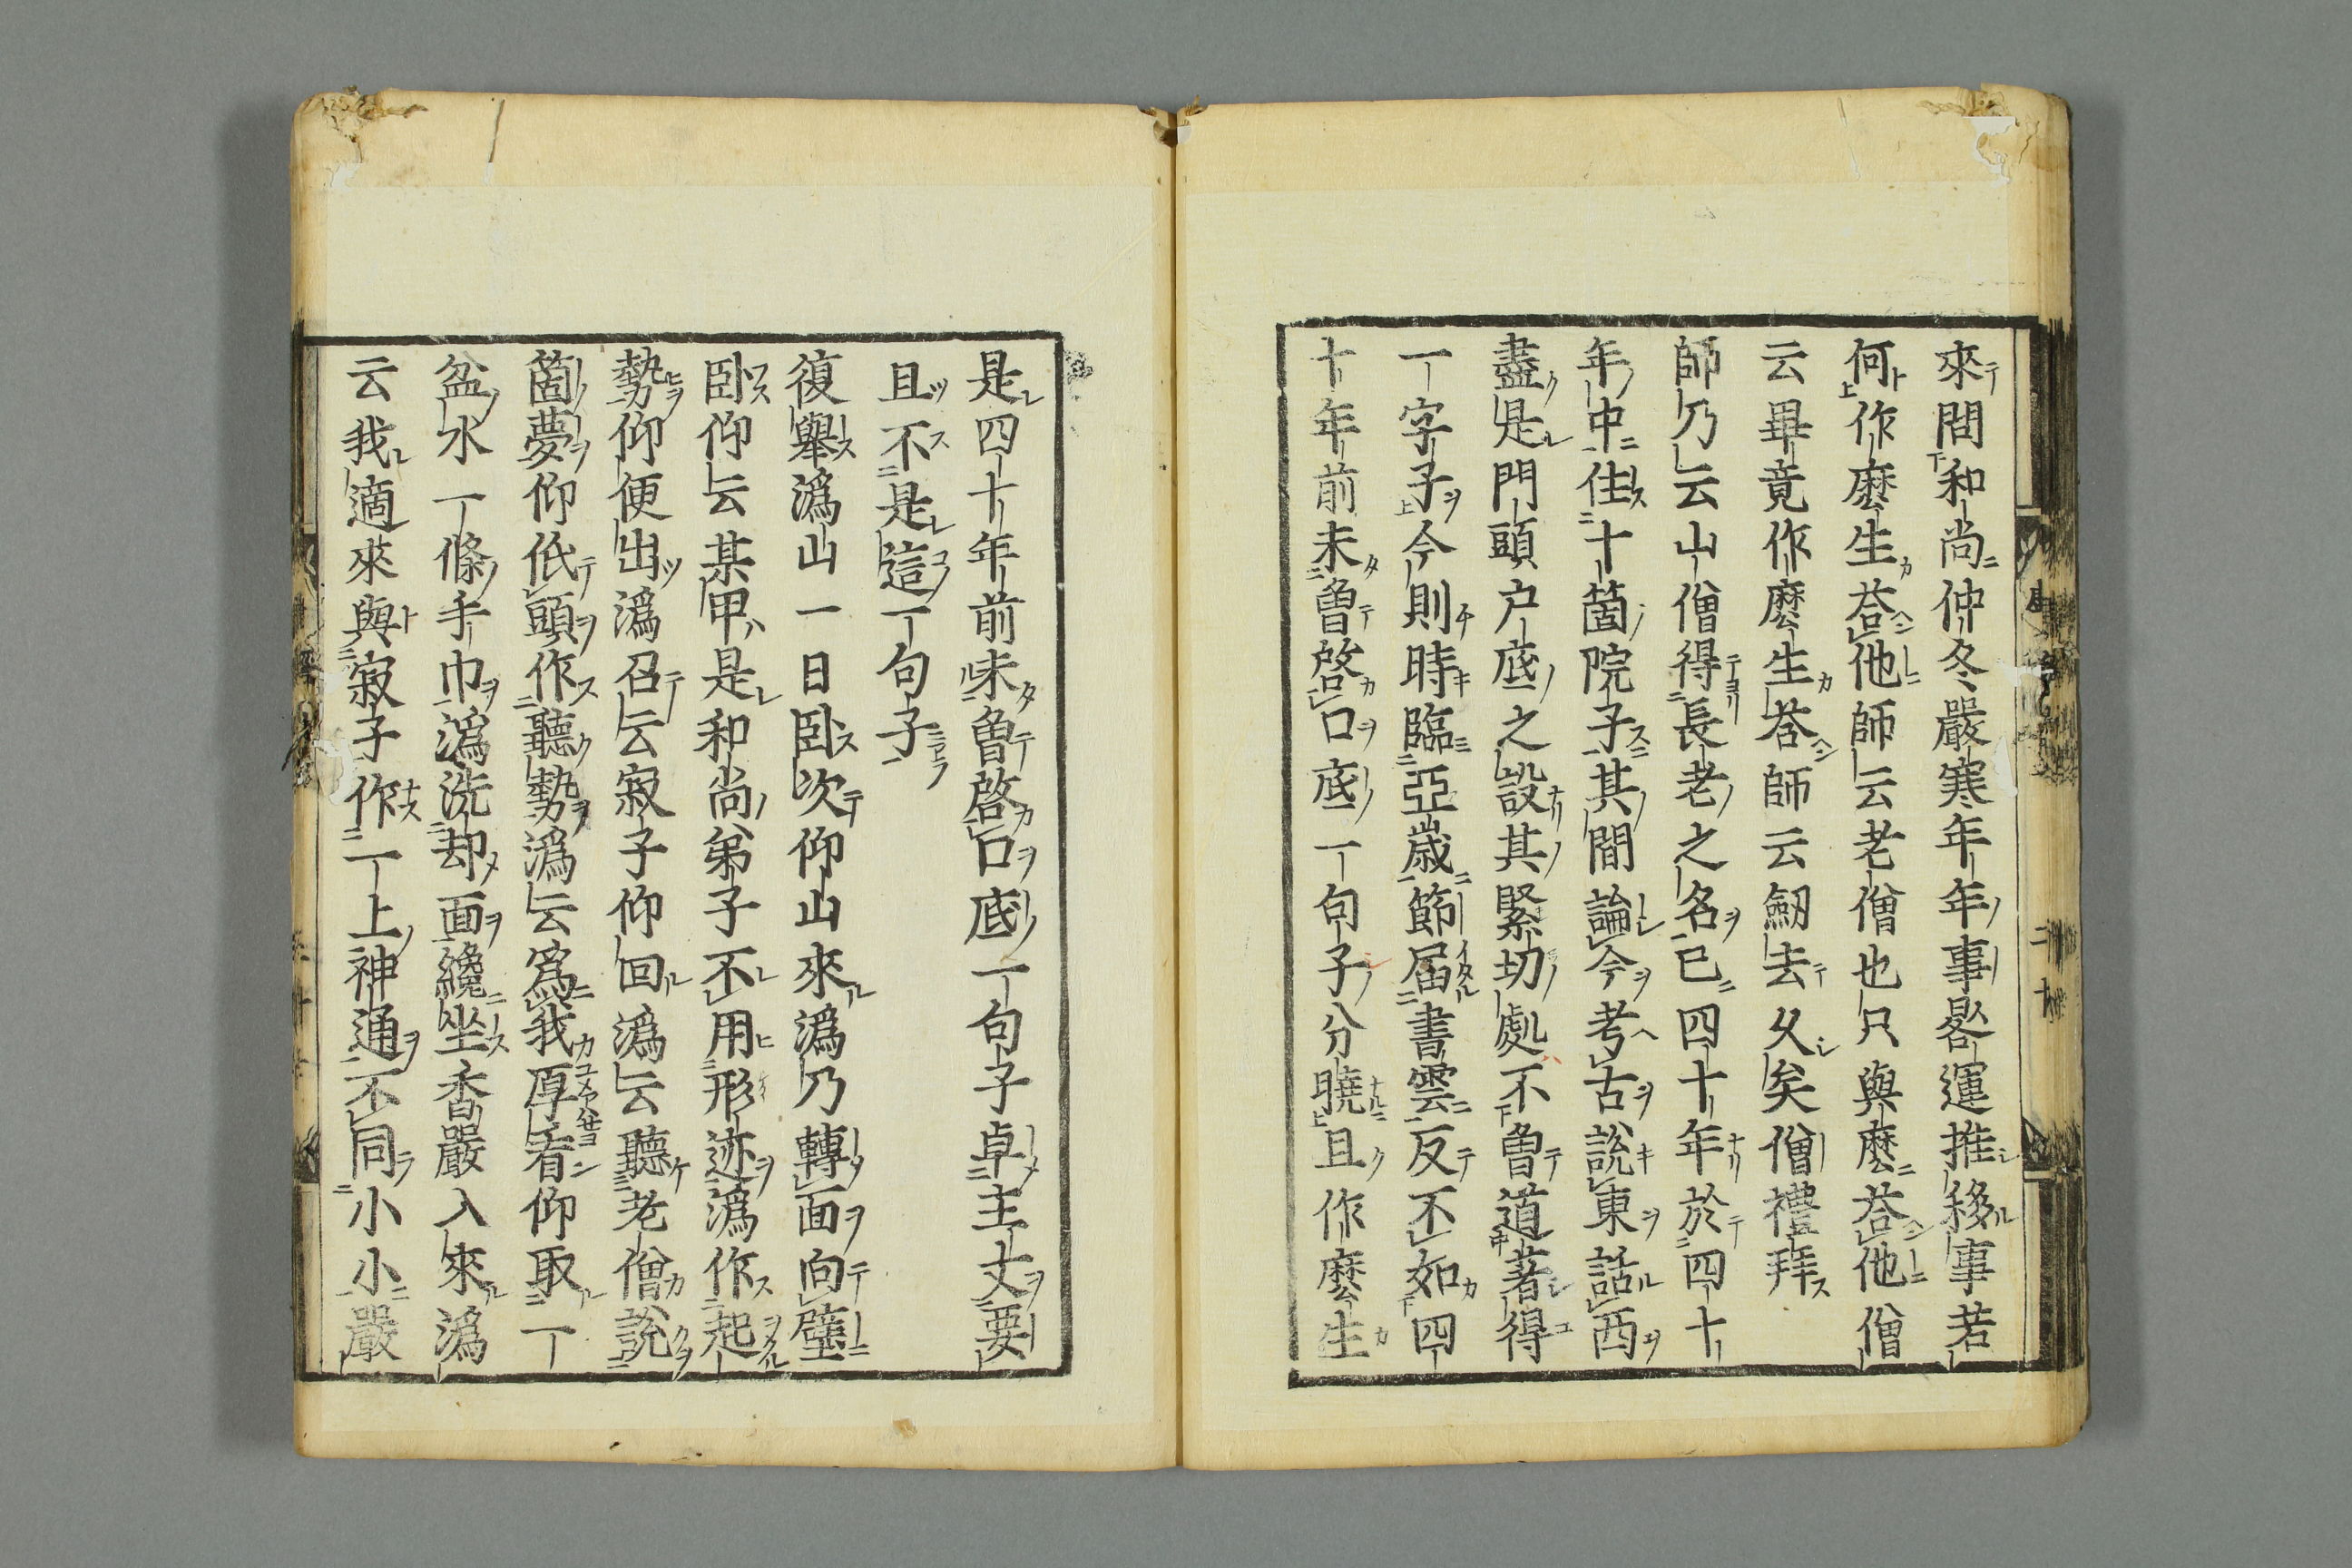 來問和尚仲冬嚴寒年年事晷運推移事若
何作麼生荅他師云老僧也只與麼荅他僧
云畢竟作麼生荅師云劒去久矣僧禮拜
師乃云山僧得長老之名已四十年於四十
年中住十箇院子其間論今考古說東話西
盡是門頭户底之設其緊切處不曾道著得
一字子今則時臨亞歲節届書雲反不如四
十年前未曾啓口底一句子分曉且作麼生
是四十年前味曾啓口底一句子卓主丈要
且不是這一句子
復舉溈山一日卧次仰山來溈乃轉面向壁
卧仰云某甲是和尚弟子不用形迹溈作起
勢仰便出溈召云寂子仰回溈云聽老僧說
箇夢仰低頭作聽勢溈云爲我原看仰取一
盆水一條手巾溈洗却面纔坐香嚴入來溈
云我適來與寂子作一上神通不同小小嚴